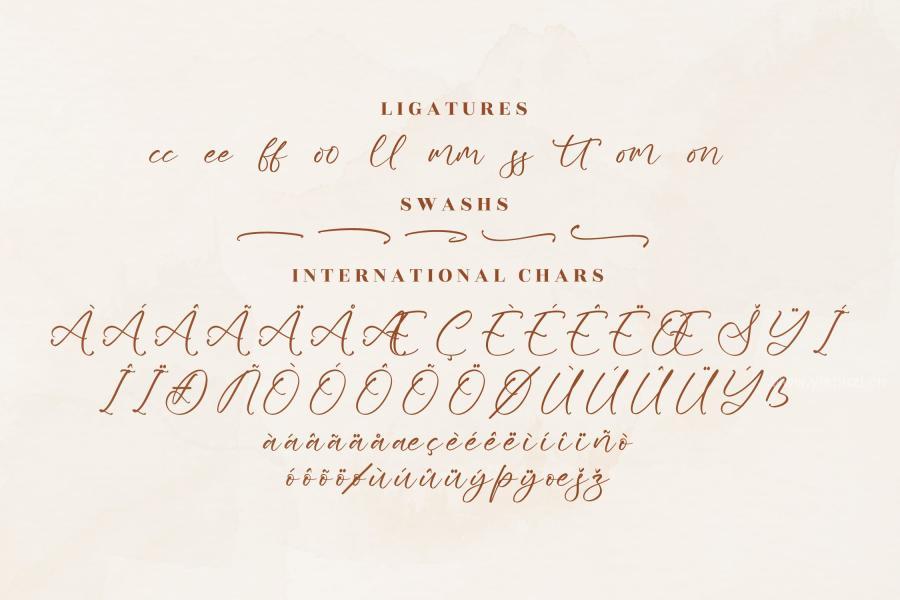 LIGATURES
cc ee ff oo ll mm ss tt om on
SWASHS
INTERNATIONAL CHARS
À Á Â Ã Ä Å Æ Ç È É Ê Ë Œ Š Ÿ Í
Î Ï Ð Ñ Ò Ó Ô Õ Ö Ø Ù Ú Û Ü Ý ß
àáâãäåæçèéêëìíîïñò
óôõöøùúûüýþÿœšž